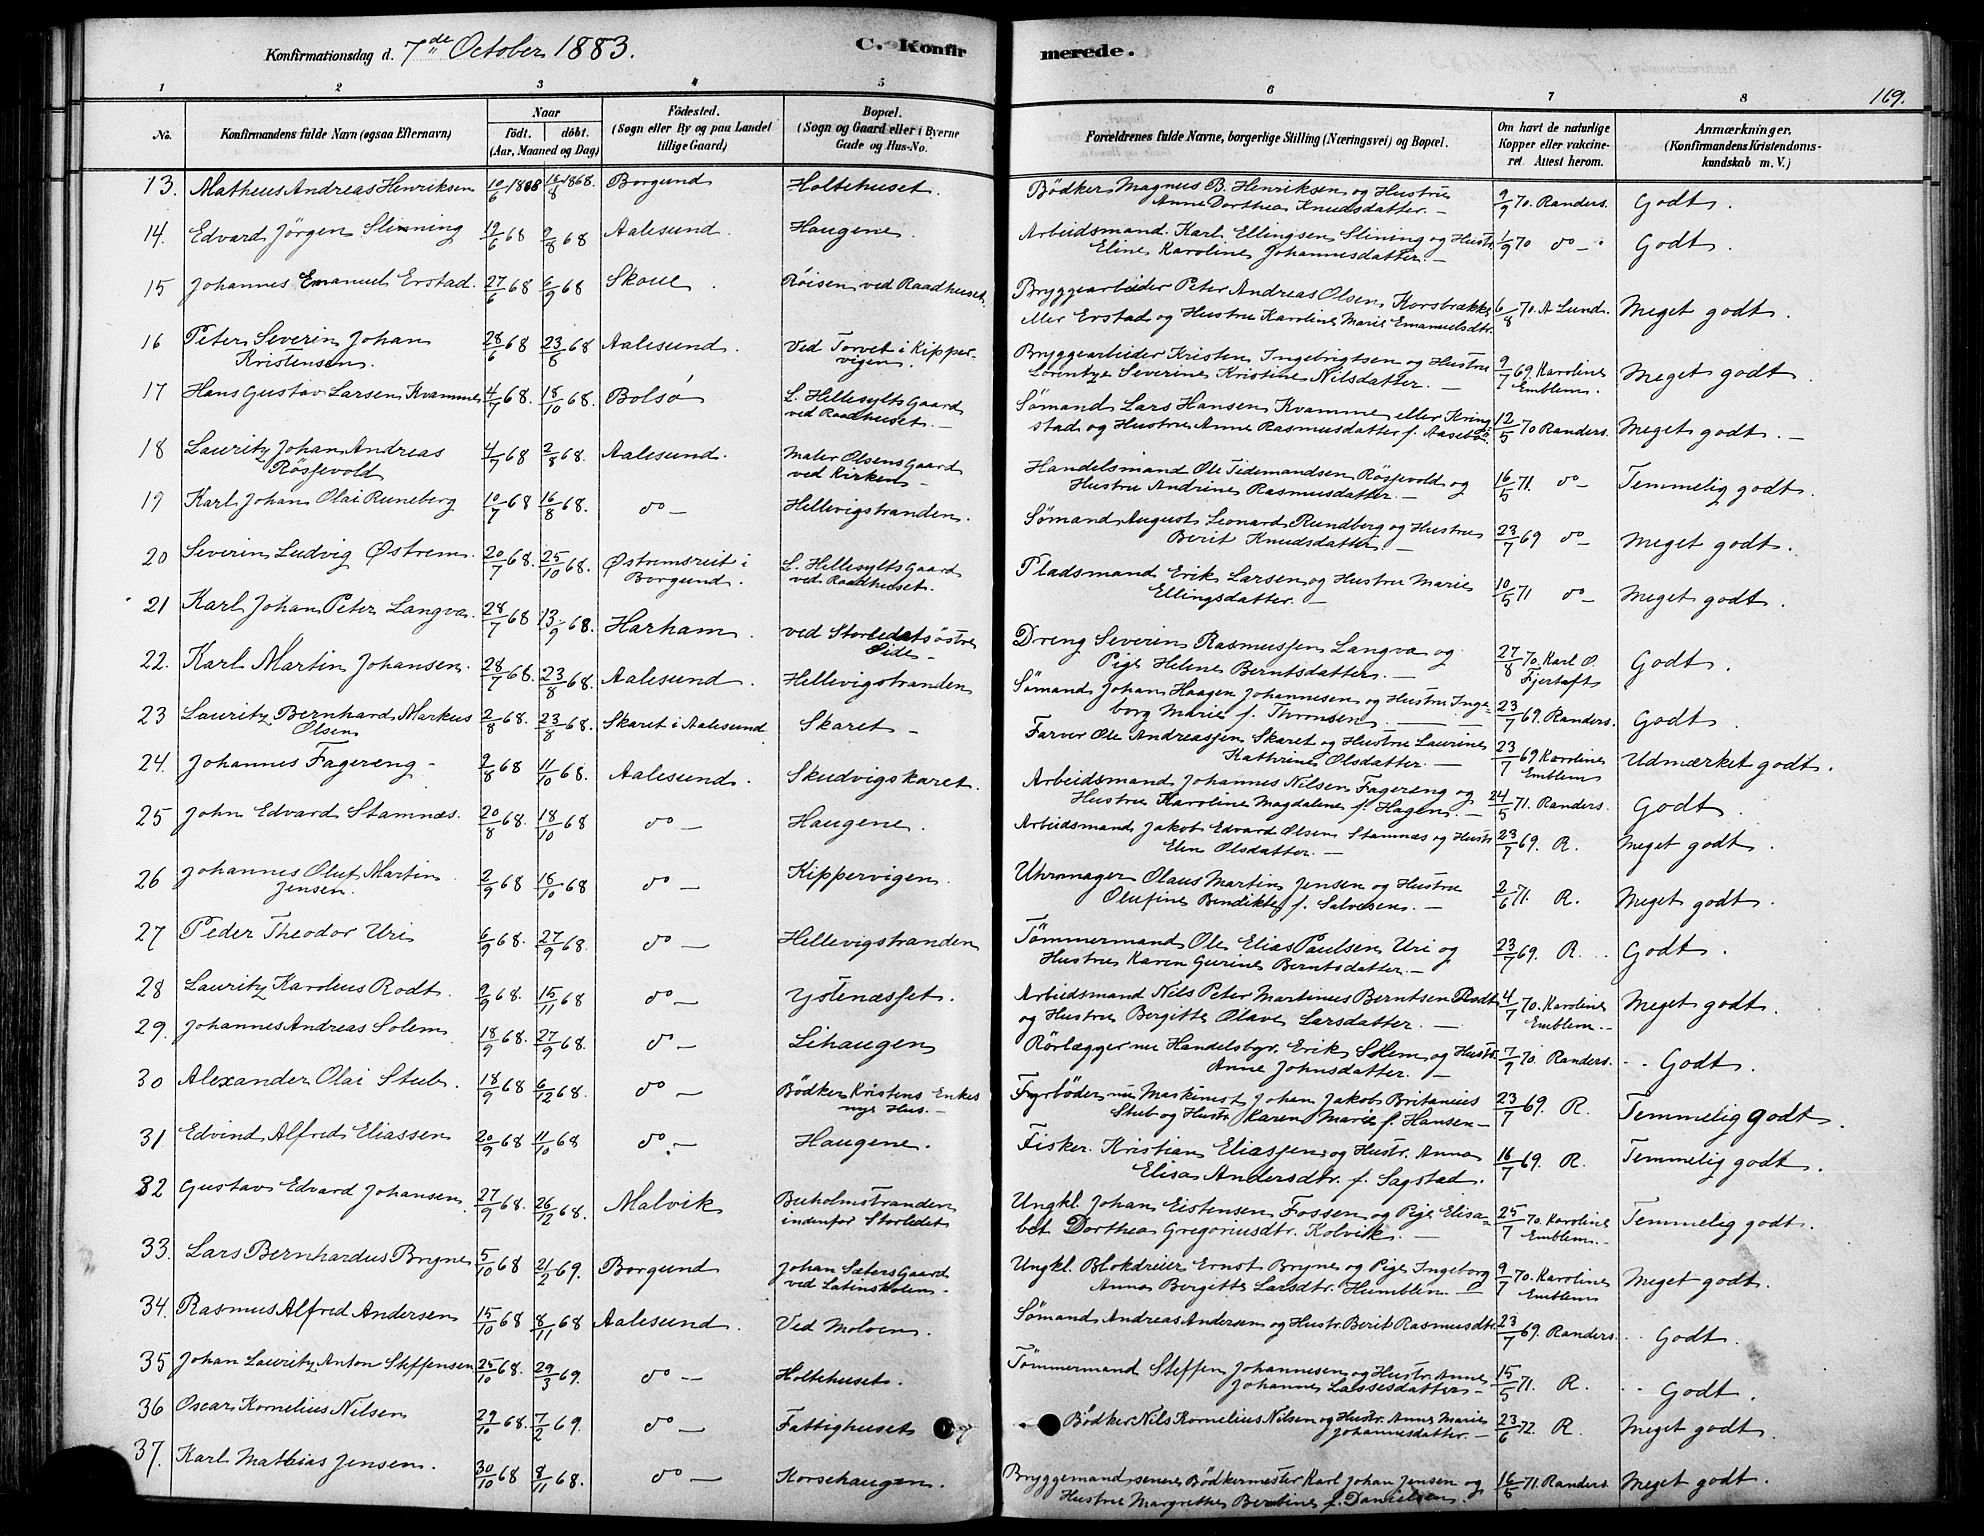 Konfirmationsdag d. 7de October 1883.
C. Konfirmerede.
169.
1 2 3 4 5 6 7 8
No.
Konfirmandens fulde Navn (ogsaa Efternavn)
Naar
født. døbt.
(Aar, Maaned og Dag)
Fødested.
(Sogn eller By og paa Landet
tillige Gaard)
Bopæl.
(Sogn og Gaard eller i Byerne
Gade og Hus-No.
Forældrenes fulde Navne, borgerlige Stilling (Næringsvei) og Bopæl.
Om havt de naturlige
Kopper eller vakcine-
ret. Attest herom.
Anmærkninger.
(Konfirmandens Kristendoms-
kundskab m. V.)
13. Matheus Andreas Henriksen 10/6 1868 16/8 1868. Borgund Holtehuset. Bødker Magnus B. Henriksen og Hustru 9/9 70. Randers. Godt.
Anne Dorthea Knudsdatter. —
14. Edvard Jørgen Slinning 19/6 68 9/8 68 Aalesund Haugene. Arbeidsmand. Karl Ellingsen Slining og Hustr. 1/9 70 do — Godt.
Eline Karoline Johannesdatter. —
15 Johannes Emanuel Erstad. 27/6 68 6/9 68 Skoue. Røisen ved Raadhuset. Bryggearbeider Peter Andreas Olsen Korsbrække 6/8 70. A Lund. Meget godt.
eller Erstad og Hustru Karoline Marie Emanuelsdtr.
16 Peter Severin Johan 28/6 68 23/8 68 Aalesund. Ved Torvet i Kipper- Bryggearbeider Kristen Ingebrigtsen og Hustru 9/7 69. Karoline Meget godt.
Kristensen. vigen. Lorentze Severine Kristine Nilsdatter. — Emblem.
17 Hans Gustav Larsen Kvamme 4/7 68. 18/10 68. Bolsø L. Hellesylts Gaard Sømand Lars Hansen Kvamme eller Kring- 12/5 70 Randers. Meget godt. —
ved Raadhuset. — stad og Hustru Anne Rasmusdatter f. Aasebø.
18 Lauritz Johan Andreas 4/7 68 2/8 68. Aalesund. Maler Olsens Gaard Handelsmand Ole Tidemandsen Røsjevold og 16/5 71. do — Temmelig godt.
Røsjevold ved Kirken — Hustru Andrine Rasmusdatter. —
19 Karl Johan Olai Runeberg 10/7 68 16/8 68. do — Hellevigstranden. Sømand August Leonard Rundberg og Hustru 23/7 69 do — Meget godt.
Berit Knudsdatter. —
20 Severin Ludvig Østrem. 20/7 68. 25/10 68. Østremsreit i L. Hellesylts Gaard Pladsmand Erik Larsen og Hustru Marie 10/5 71 do — Meget godt.
Borgund. ved Raadhuset. Ellingsdatter. —
21 Karl Johan Peter Langva. 28/7 68 13/9 68. Harham. ved Storledets østre Dreng Severin Rasmussen Langva og 27/8 70. Karl O. Godt.
Side — Pige Heline Berntsdatter. — Fjertoft
22. Karl Martin Johansen. 28/7 68. 23/8 68. Aalesund. Hellevigstranden Sømand Johan Haagen Johannesen og Hustru Inge- 23/7 69. Randers. Godt.
borg Marie f. Thronsen. —
23 Lauritz Bernhard Markus 2/8 68. 23/8 68. Skaret i Aalesund Skaret — Farver Ole Andreassen Skaret og Hustru Laurine 23/7 69 Karoline Udmærket godt.
Olsen Kathrine Olsdatter. — Emblem
24. Johannes Fagereng — 2/8 68 11/10 68. Aalesund. Skudvigskaret. Arbeidsmand Johannes Nilsen Fagereng og 24/5 71. Randers. Godt.
Hustru Karoline Magdalene f. Hagen. —
25 John Edvard Stamnæs. 20/8 68. 18/10 68 do — Haugene. Arbeidsmand Jakob Edvard Olsen Stamnæs og Hustr 23/7 69. R. Meget godt.
Elen Olsdatter. —
26 Johannes Oluf Martin 2/9 68 18/10 68 do — Kippervigen. Uhrmager Olaus Martin Jensen og Hustru 2/6 71. R. Meget godt.
Jensen. Olufine Bendikte f. Salvesen. —
27 Peder Theodor Uri 6/9 68. 27/9 68. do — Hellevigstranden Tømmermand Ole Elias Paulsen Uri og 23/7 69. R. Godt.
Hustru Karen Gurine Berntsdatter. —
28 Lauritz Karolius Rodt. 9/9 68. 15/11 68 do — Ystenæsset. Arbeidsmand Nils Peter Martinus Berntsen Rodt 4/7 70. Karoline Meget godt.
og Hustru Bergitte Olave Larsdatter. — Emblem. —
29. Johannes Andreas Solem 18/9 68. 27/9 68. do — Lihaugen Rørlægger nu Handelsbgr. Erik Solem og Hustr. 7/9 70. Randers. Godt.
Anne Johnsdatter. —
30 Alexander Olai Stub. 18/9 68 6/12 68. do — Bødker Kristens Enkes Fyrbøder nu Maskinist Johan Jakob Britanius 23/7 69. R. Temmelig godt.
nye Hus. — Stub og Hustr. Karen Marie f. Hansen —
31 Edvind Alfred Eliassen 20/9 68 11/10 68 do — Haugene. Fisker. Kristian Eliassen og Hustr. Anna 16/7 69. R. Temmelig godt.
Elisa Andersdtr. f. Sagstad.
32 Gustav Edvard Johansen 27/9 68. 26/12 68. Malvik Buholmstranden Ungkl. Johan Eistensen Fossen og Pige Elisa- 25/7 70. Karoline Temmelig godt.
indenfor Storledet bet Dorthea Gregoriusdtr. Kolvik. — Emblem. —
33. Lars Bernhardus Brynes 5/10 68 21/2 69. Borgund Johan Sæters Gaard Ungkl. Blokdreier Ernst Brynes og Pige Ingeborg 9/7 70. Karoline Meget godt.
ved Latinskolen. Anna Bergitte Larsdtr. Humblen — Emblem
34. Rasmus Alfred Andersen 15/10 68 8/11 68 Aalesund. Ved Molven. Sømand Andreas Andersen og Hustr. Berit Rasmusdtr 23/7 69. Randers. Godt.
35 Johan Lauritz Anton Steffensen 25/10 68. 29/3 69. do — Holtehuset. Tømmermand Steffen Johannesen og Hustr. Anne 15/5 71. R. Godt.
Johanne Lassesdatter —
36 Oscar Kornelius Nilsen 29/10 68. 7/2 69. do — Fattighuset Bødker Nils Kornelius Nilsen og Hustr. Anne Marie 23/6 72. R. Meget godt.
Johannesdatter. —
37. Karl Mathias Jensen. 30/10 68 8/11 68. do — Korsehaugen. Bryggemand senere Bødkermester Karl Johan Jensen og 16/5 71. Randers Meget godt.
Hustru Margrethe Bertine f. Danielsen.